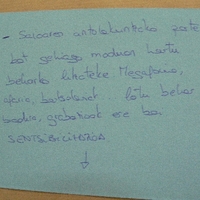 - Saioaren antolakuntzako parte
bat gehiago moduan hartu
beharko litezke. Megafonia,
argia, bestelakoak... lotu behar
badira, grabazioak ere bai.
SENTSIBILIZAZIOA
↓